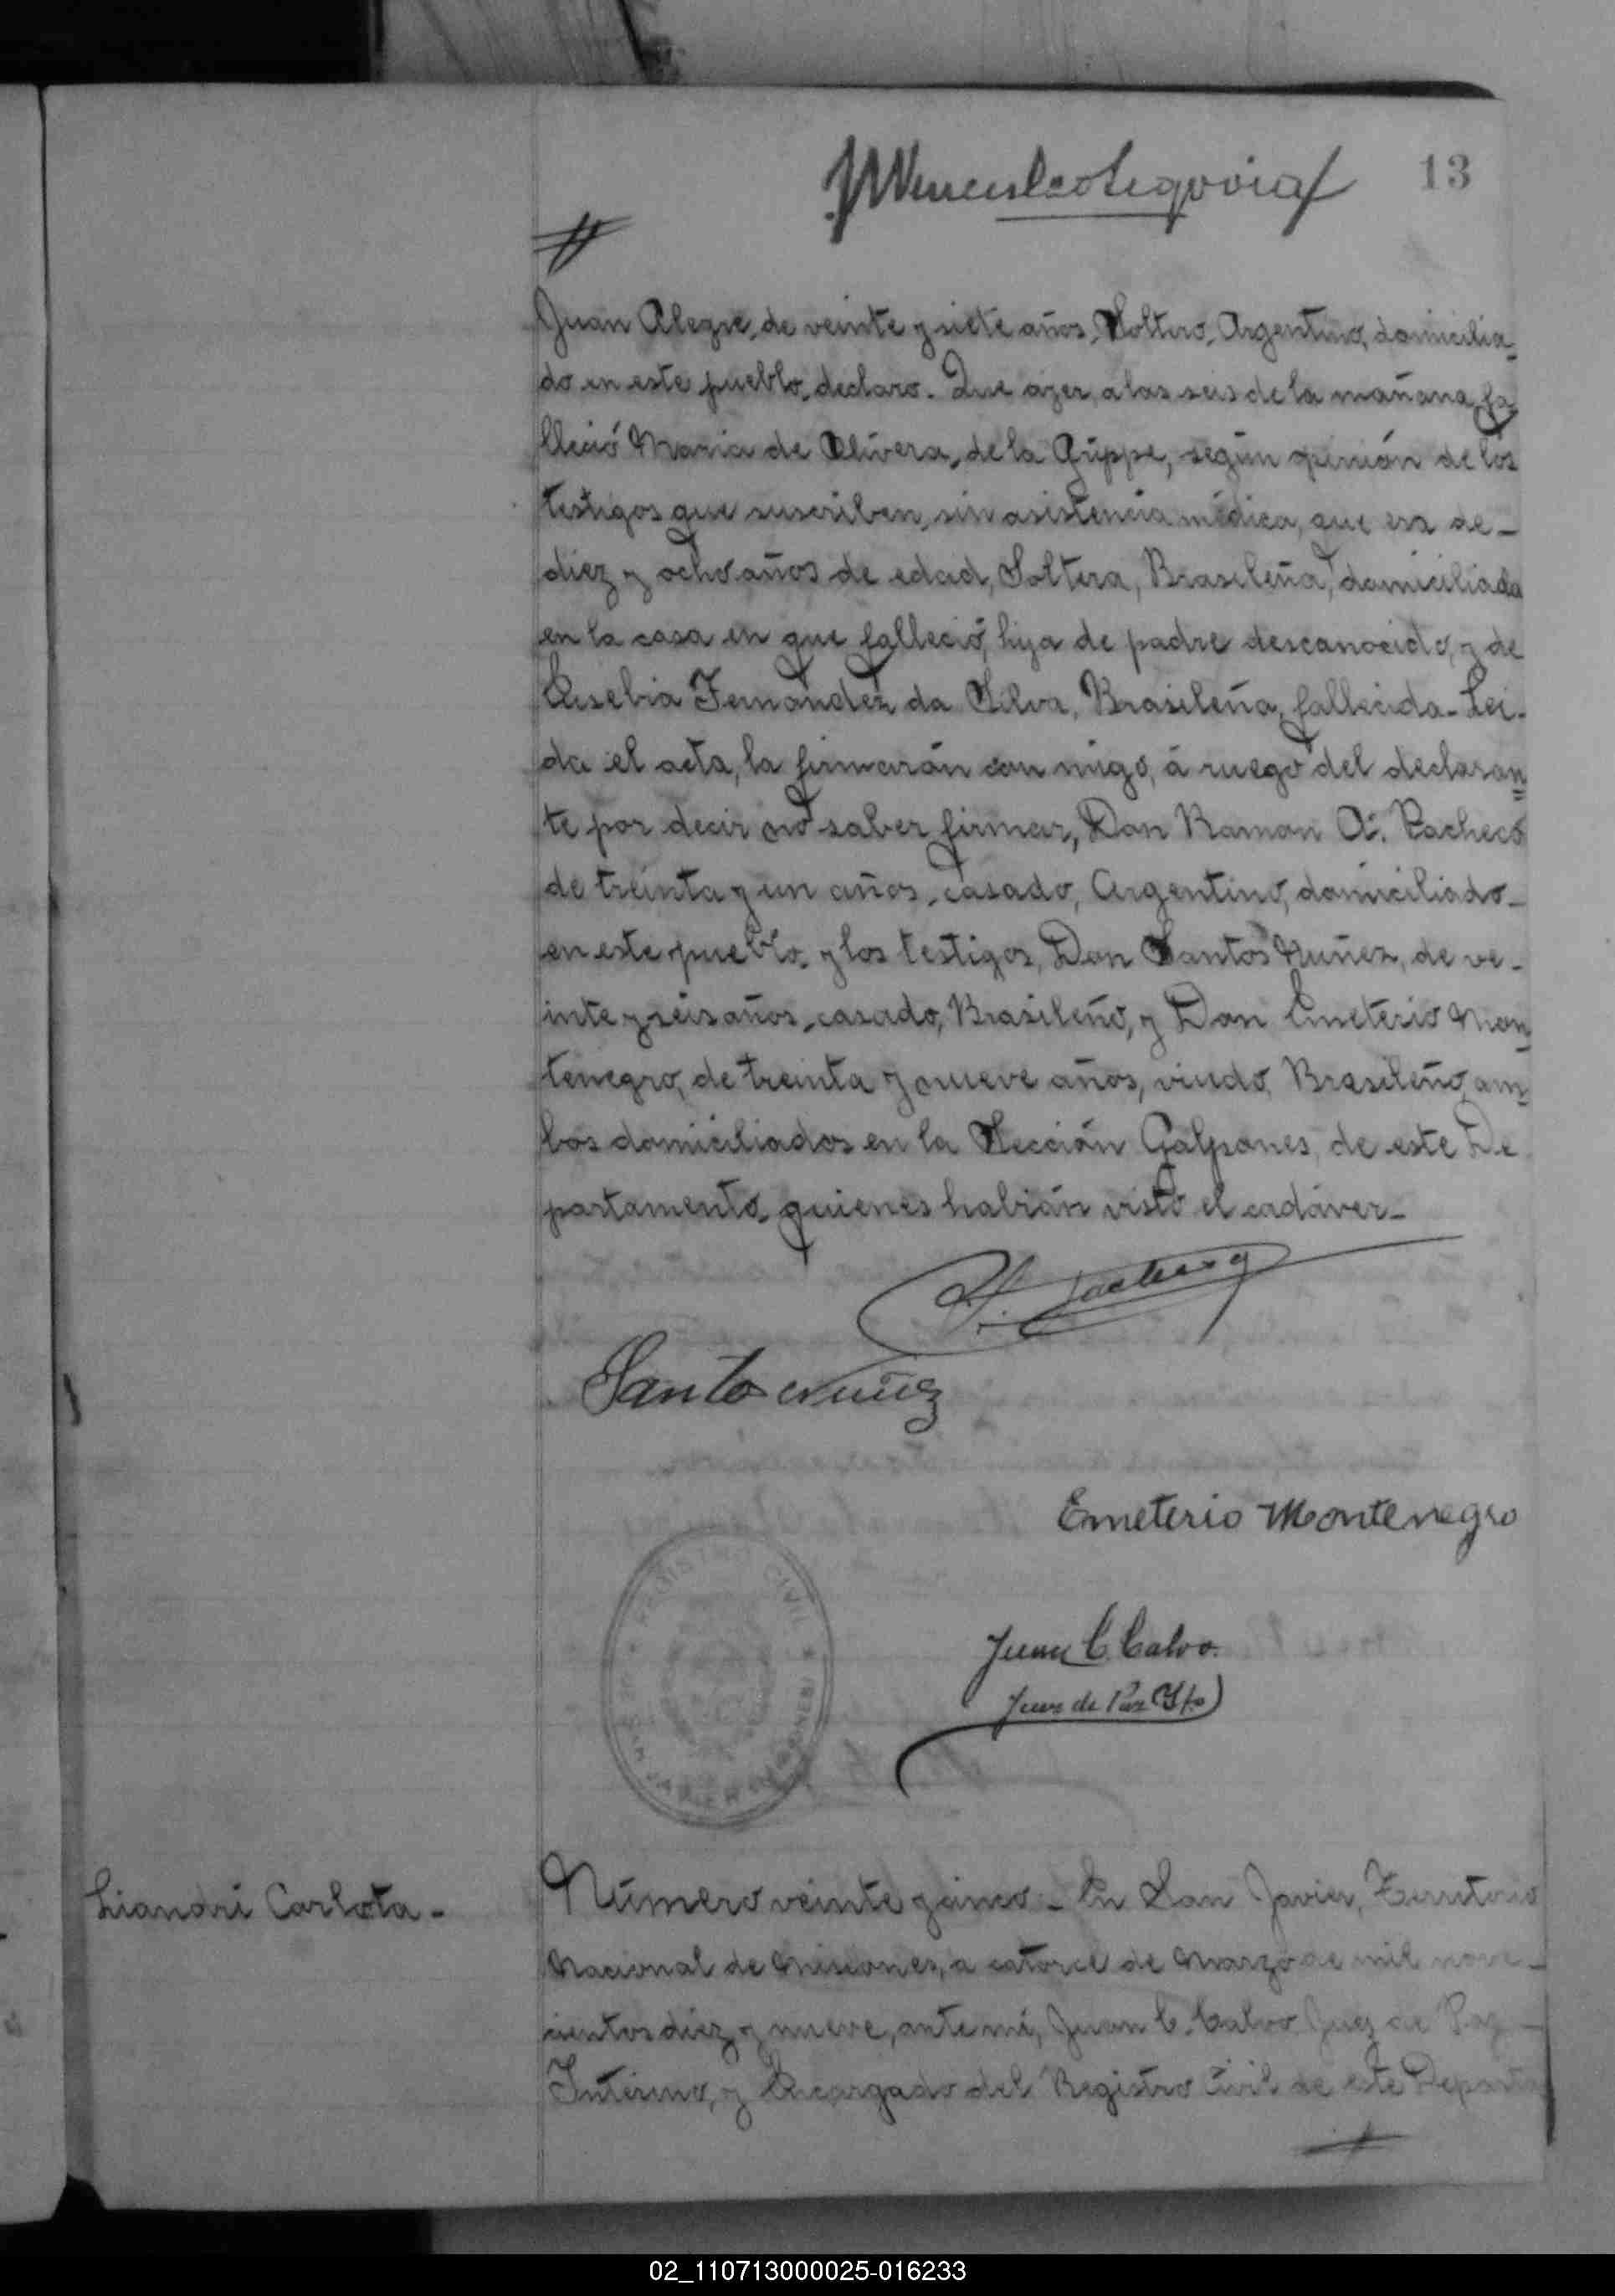 13
Juan Alegre, de veinte y siete años, Soltero, Argentino, domicilia-
do en este pueblo, declaro. Que ayer, a las seis de la mañana fa-
lleció Maria de Olivera, de la Grippe, según opinión de los
testigos que suscriben, sin asistencia médica, que era de-
diez y ocho años de edad, Soltera, Brasileña, domiciliada
en la casa en que falleció, hija de padre descanocido, y de
Eusebia Fernández da Silva, Brasileña, fallecida. Lei-
da el acta, la firmarán con migo, á ruego del declaran=
te por decir no saber firmar, Don Ramon A. Pacheco
de treinta y un años, casado, Argentino, domiciliado-
en este pueblo, y los testigos, Don Santos Nuñez, de ve-
inte y seis años, casado, Brasileño, y Don Emeterio Mon-
tenegro, de treinta y nueve años, viudo, Brasileño, am-
bos domiciliados en la Sección Galpones, de este De
partamento, quienes habián visto el cadáver-
Santos Nuñez
Emeterio Montenegro
REGISTRO CIVIL
DE SAN JAVIER (MISIONES)
Juan C. Calvo.
Juez de Paz (Ito)
Liandri Carlota-
Número veinte y cinco- En San Javier, Territorio
Nacional de Misiones, a catorce de Marzo de mil nove-
cientos diez y nueve, ante mí, Juan C. Calvo Juez de Paz-
Interino, y Encargado del Registro Civil de este Departa
02_110713000025-016233